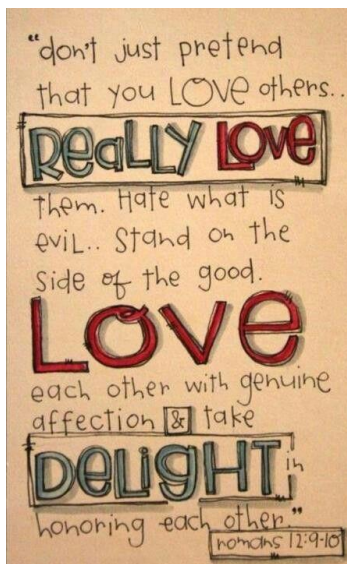 "don't just pretend
that you LOVE others..
REALLY LOVE
them. Hate what is
evil.. Stand on the
side of the good.
LOVE
each other with genuine
affection & take
DELIGHT in
honoring each other."
romans 12:9-10